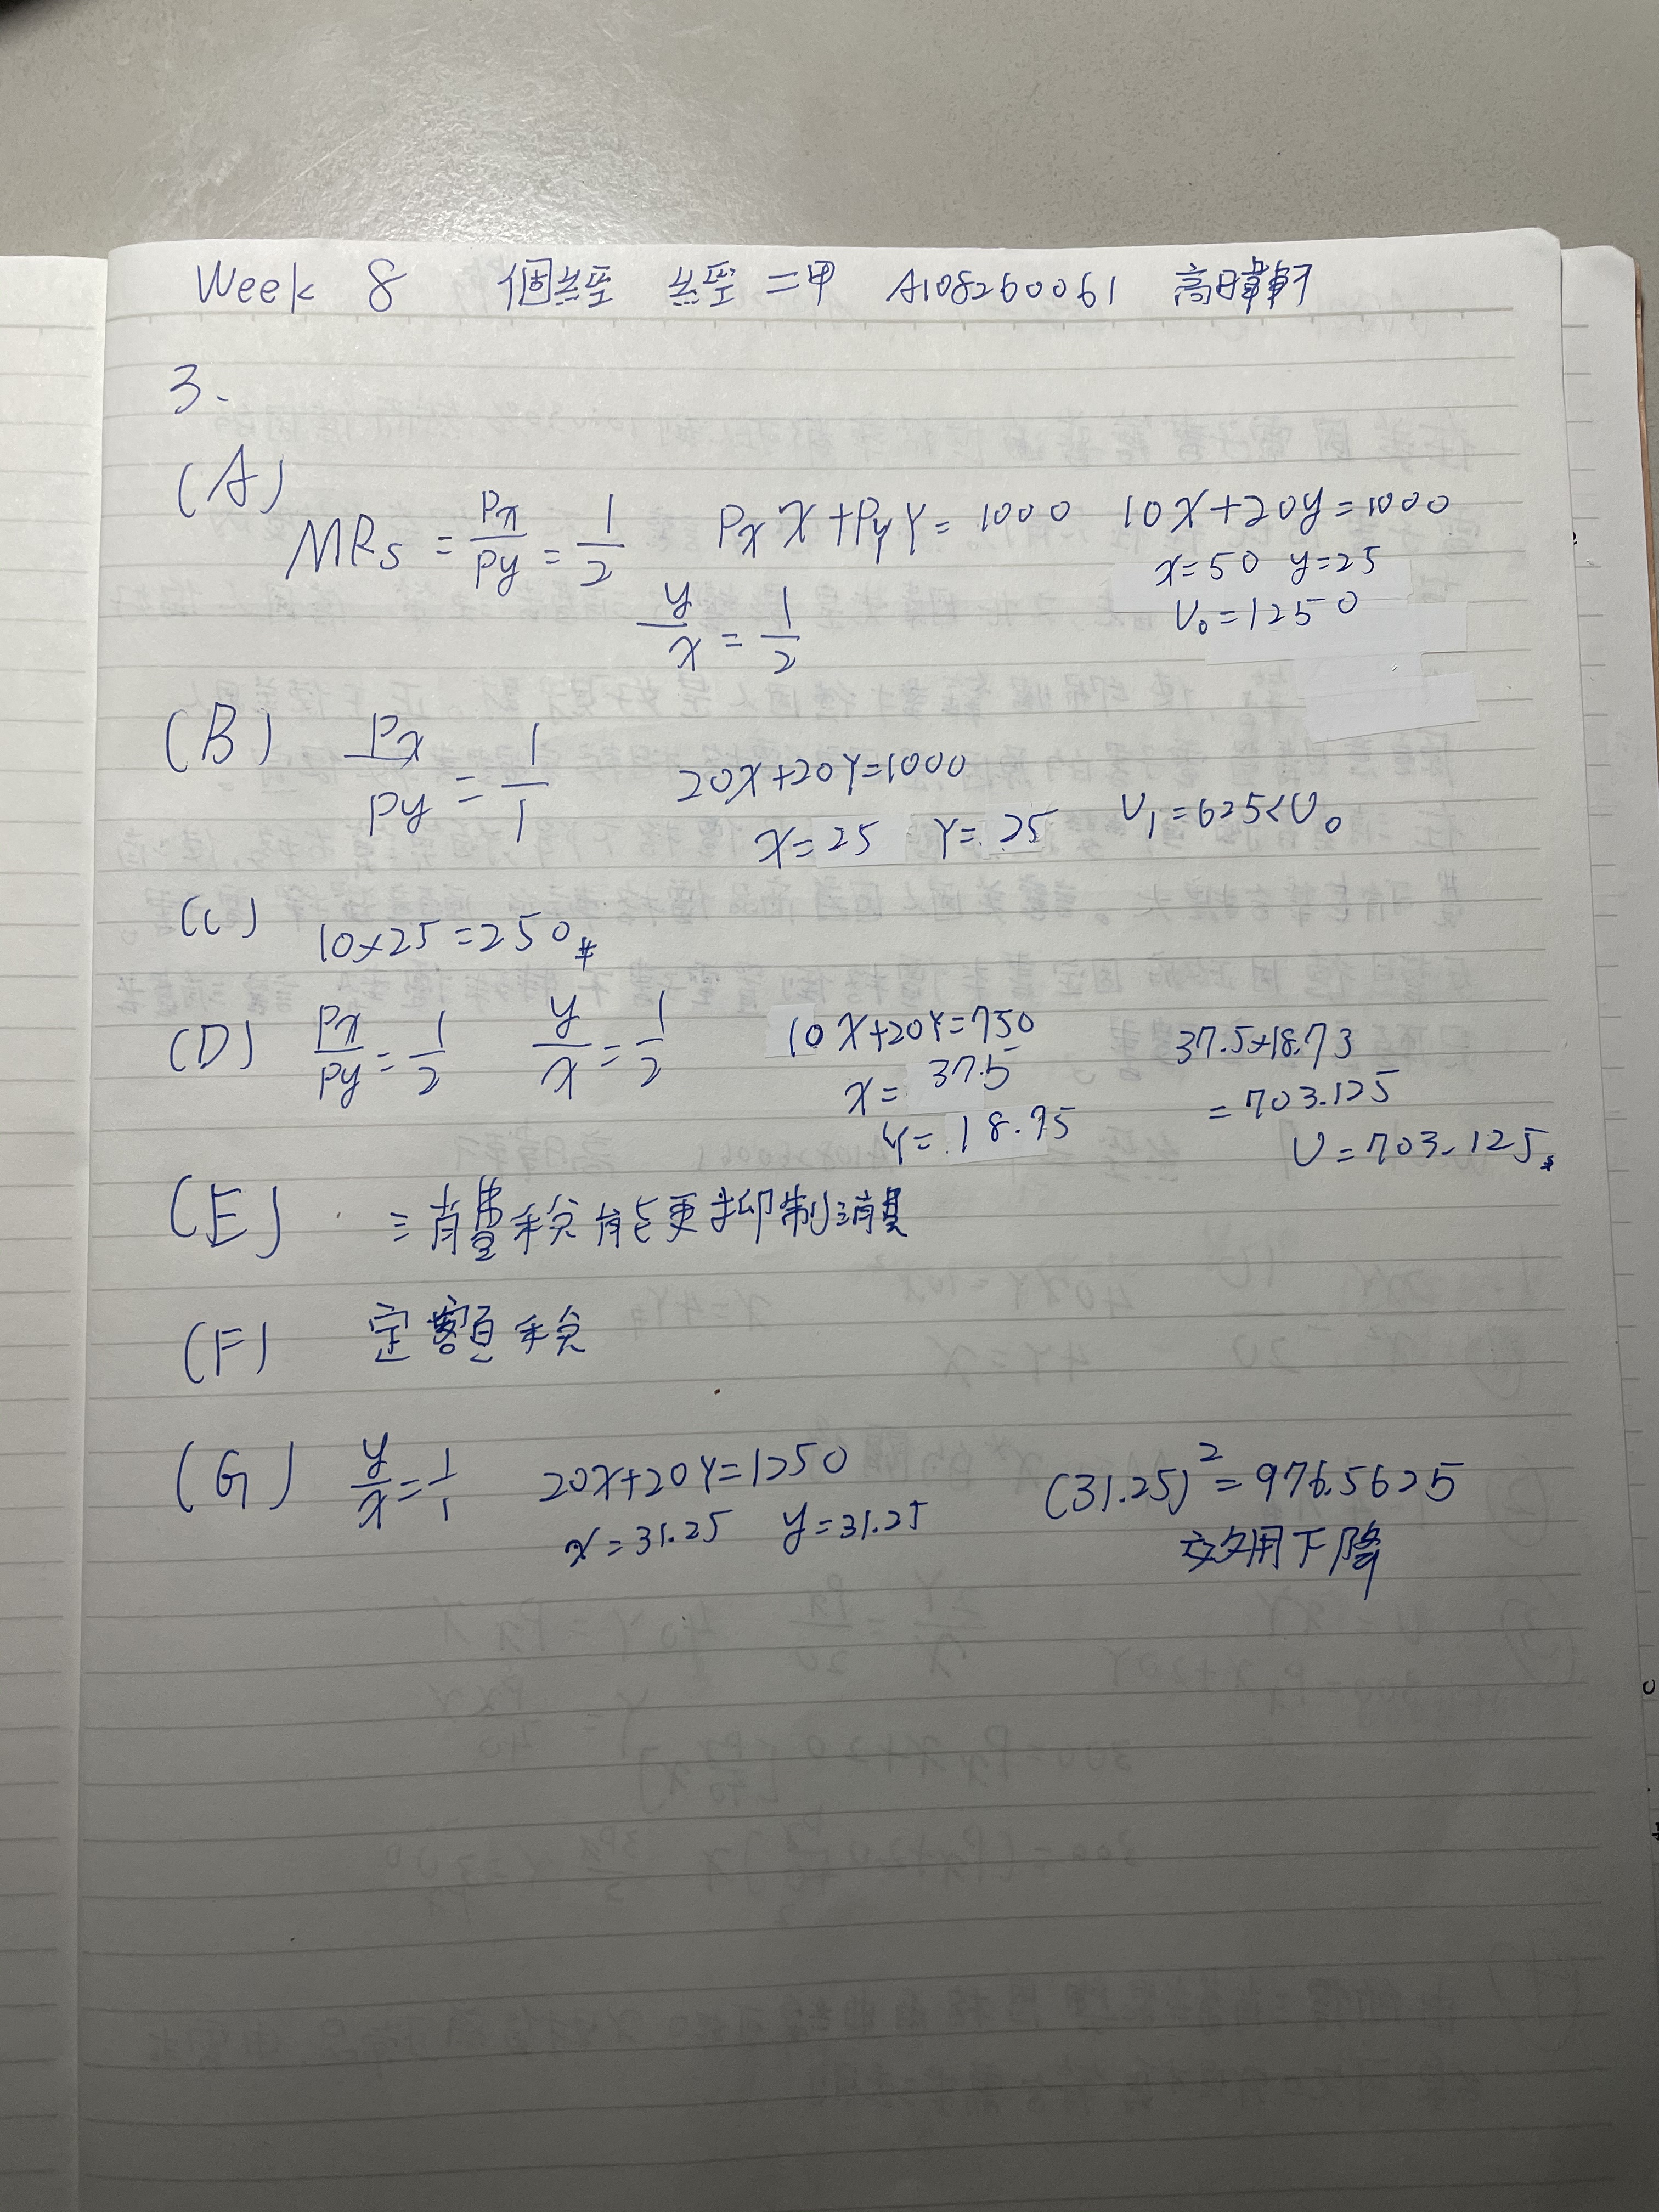 Week 8 個經 經二甲 A108260061 高暐軒
3.
(A)
MRS = Px/Py = 1/2 PxX+PyY=1000 10X+20y=1000
x=50 y=25
y/x = 1/2 U₀=1250
(B) Px/Py = 1/1 20X+20Y=1000
X=25 Y=25 U₁=625<U₀
(C) 10×25=250#
(D) Px/Py = 1/2 y/x = 1/2 10X+20Y=750 37.5×18.73
X=37.5 =703.125
Y=18.75 U=703.125#
(E) 消費稅能更抑制消費
(F) 定額稅
(G) y/x = 1/1 20X+20Y=1250 (31.25)²=976.5625
x=31.25 y=31.25 效用下降